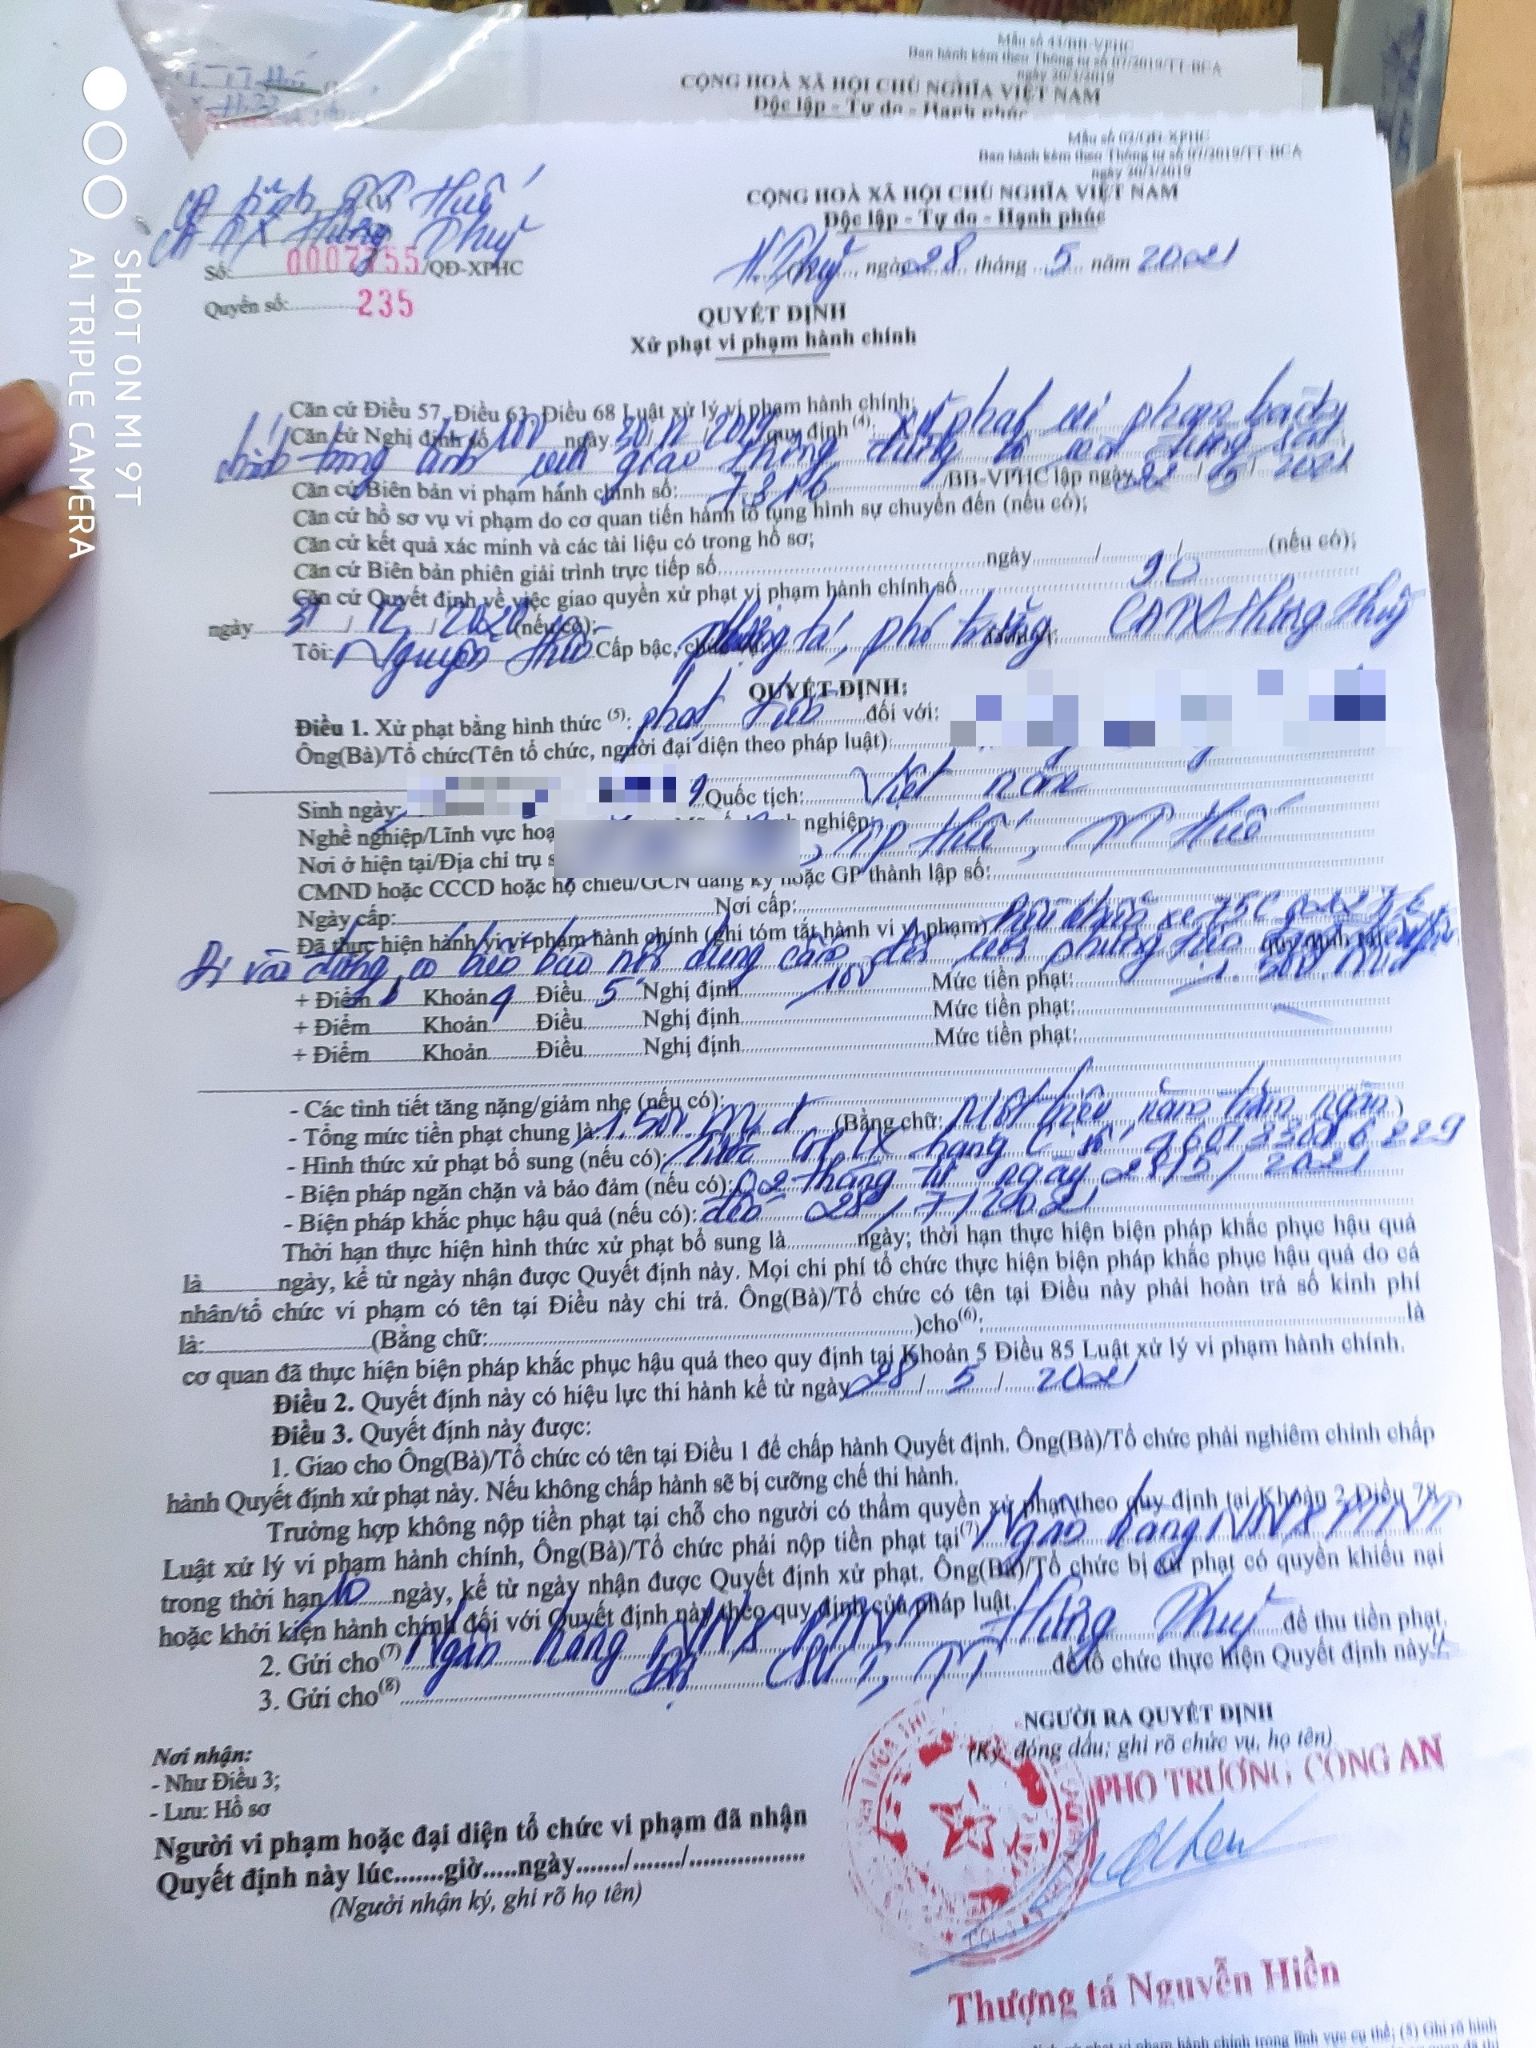 Mẫu số 43/BB-VPHC
Ban hành kèm theo Thông tư số 07/2019/TT-BCA
ngày 20/3/2019
CỘNG HOÀ XÃ HỘI CHỦ NGHĨA VIỆT NAM
Độc lập - Tự do - Hạnh phúc
Mẫu số 02/QĐ-XPHC
Ban hành kèm theo Thông tư số 07/2019/TT-BCA
ngày 20/3/2019
CA tỉnh TT Huế
CỘNG HOÀ XÃ HỘI CHỦ NGHĨA VIỆT NAM
CA TX Hương Thuỷ
Độc lập - Tự do - Hạnh phúc
Số: 0007755/QĐ-XPHC
H. Thuỷ, ngày 28 tháng 5 năm 2021
Quyển số: 235
QUYẾT ĐỊNH
Xử phạt vi phạm hành chính
Căn cứ Điều 57, Điều 63, Điều 68 Luật xử lý vi phạm hành chính;
Căn cứ Nghị định số 100 ngày 30/12/2019 quy định (4): xử phạt vi phạm hành
chính trong lĩnh vực giao thông đường bộ và đường sắt
Căn cứ Biên bản vi phạm hành chính số: /BB-VPHC lập ngày 22/5/2021
Căn cứ hồ sơ vụ vi phạm do cơ quan tiến hành tố tụng hình sự chuyển đến (nếu có);
Căn cứ kết quả xác minh và các tài liệu có trong hồ sơ;
Căn cứ Biên bản phiên giải trình trực tiếp số ngày / / (nếu có);
Căn cứ Quyết định về việc giao quyền xử phạt vi phạm hành chính số 90
ngày 31/12/2020 (nếu có);
Tôi: Nguyễn Hiền Cấp bậc, chức vụ: thượng tá, phó trưởng CATX Hương Thuỷ
QUYẾT ĐỊNH:
Điều 1. Xử phạt bằng hình thức (5): phạt tiền đối với:
Ông(Bà)/Tổ chức(Tên tổ chức, người đại diện theo pháp luật):
Sinh ngày: 9 Quốc tịch: Việt nam
Nghề nghiệp/Lĩnh vực hoạ nghiệp:
Nơi ở hiện tại/Địa chỉ trụ s , TP Huế, TT Huế
CMND hoặc CCCD hoặc hộ chiếu/GCN đăng ký hoặc GP thành lập số:
Ngày cấp: Nơi cấp:
Đã thực hiện hành vi vi phạm hành chính (ghi tóm tắt hành vi vi phạm) điều khiển xe 75C
Đi vào đường có biển báo nội dung cấm đối với phương tiện đang điều khiển quy định tại
+ Điểm b Khoản 4 Điều 5 Nghị định 100 Mức tiền phạt: 1.500.000đ
+ Điểm Khoản Điều Nghị định Mức tiền phạt:
+ Điểm Khoản Điều Nghị định Mức tiền phạt:
- Các tình tiết tăng nặng/giảm nhẹ (nếu có):
- Tổng mức tiền phạt chung là 1.500.000đ (Bằng chữ: Một triệu năm trăm ngàn)
- Hình thức xử phạt bổ sung (nếu có): tước GPLX hạng C số
- Biện pháp ngăn chặn và bảo đảm (nếu có): 02 tháng từ ngày 28/5/2021
- Biện pháp khắc phục hậu quả (nếu có): đến 28/7/2021
Thời hạn thực hiện hình thức xử phạt bổ sung là ngày; thời hạn thực hiện biện pháp khắc phục hậu quả
là ngày, kể từ ngày nhận được Quyết định này. Mọi chi phí tổ chức thực hiện biện pháp khắc phục hậu quả do cá
nhân/tổ chức vi phạm có tên tại Điều này chi trả. Ông(Bà)/Tổ chức có tên tại Điều này phải hoàn trả số kinh phí
là: (Bằng chữ: )cho(6): là
cơ quan đã thực hiện biện pháp khắc phục hậu quả theo quy định tại Khoản 5 Điều 85 Luật xử lý vi phạm hành chính.
Điều 2. Quyết định này có hiệu lực thi hành kể từ ngày 28/5/2021
Điều 3. Quyết định này được:
1. Giao cho Ông(Bà)/Tổ chức có tên tại Điều 1 để chấp hành Quyết định. Ông(Bà)/Tổ chức phải nghiêm chỉnh chấp
hành Quyết định xử phạt này. Nếu không chấp hành sẽ bị cưỡng chế thi hành.
Trường hợp không nộp tiền phạt tại chỗ cho người có thẩm quyền xử phạt theo quy định tại Khoản 2 Điều 78
Luật xử lý vi phạm hành chính, Ông(Bà)/Tổ chức phải nộp tiền phạt tại(7) Ngân hàng NN&PTNT
trong thời hạn 10 ngày, kể từ ngày nhận được Quyết định xử phạt. Ông(Bà)/Tổ chức bị xử phạt có quyền khiếu nại
hoặc khởi kiện hành chính đối với Quyết định này theo quy định của pháp luật.
2. Gửi cho(7) Ngân hàng NN&PTNT Hương Thuỷ để thu tiền phạt.
3. Gửi cho(8) Đội CSGT, TT để tổ chức thực hiện Quyết định này./.
NGƯỜI RA QUYẾT ĐỊNH
(Ký, đóng dấu; ghi rõ chức vụ, họ tên)
Nơi nhận:
- Như Điều 3;
- Lưu: Hồ sơ
PHÓ TRƯỞNG CÔNG AN
Người vi phạm hoặc đại diện tổ chức vi phạm đã nhận
Quyết định này lúc.......giờ.....ngày......./......./..................
(Người nhận ký, ghi rõ họ tên)
Thượng tá Nguyễn Hiền
SHOT ON MI 9T
AI TRIPLE CAMERA